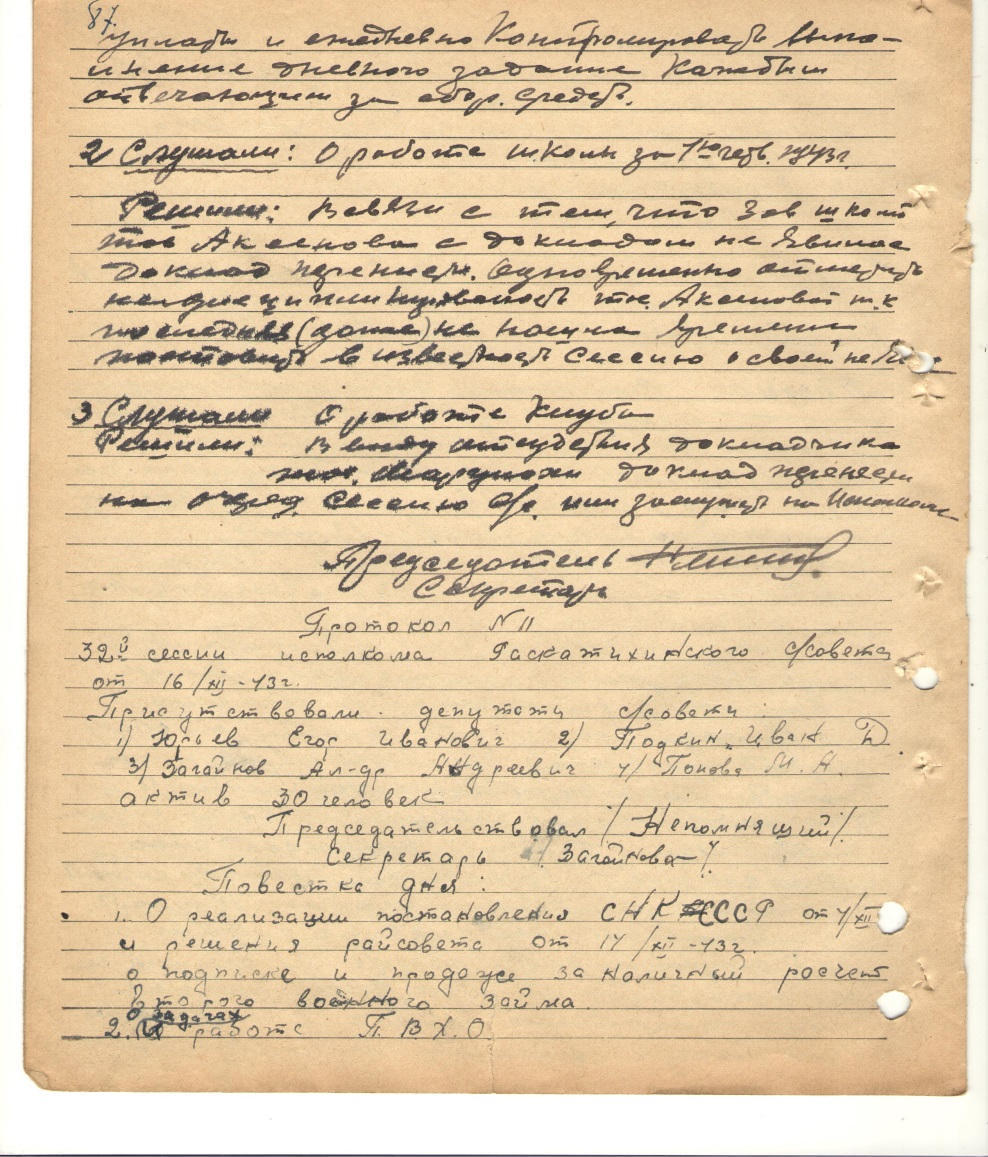 87.
уплаты и ежедневно Контролировать выпо-
лнение дневного задание Каждым
отвечающим за сбор. средств.
2 Слушали: О работе школы за 1ю четв. 1943г.
Решили: В связи с тем, что Зав школы
тов Аксенова с докладом не Явилась
доклад перенести. Одновременно отметить
не дисциплинированость тов. Аксеновой т.к
последняя (даже) не нашла Времени
поставить в известность Сессию о своей не
3 Слушали О работе Клуба
Решили: В виду отсудствия докладчика
тов. доклад перенести
на очеред. Сессию с/с. или заслушать на Исполкоме
Председатель
Секретарь
Протокол № 11
32й сессии исполкома Раскатихинского с/совета
от 16/XII-43г.
Присутствовали депутаты с/совета:
1) Юрьев Егор Иванович 2) Подкин Иван Д.
3) Загайнов Ал-др Андреевич 4) Попова М. А.
актив 30 человек
Председательствовал /Непомнящий/.
Секретарь /Загайнова/
Повестка дня:
1. О реализации постановления СНК СССР от 4/XII
и решения райсовета от 14/XII-43г.
о подписке и продаже за наличный расчет
Второго военного займа
о задачах
2. И работе П.В.Х.О.